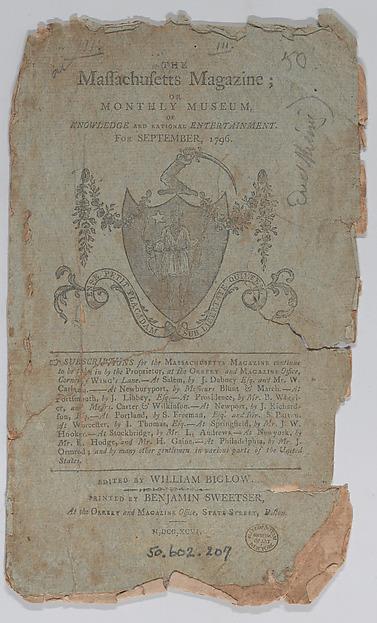 50
THE
Massachusetts Magazine;
OR
MONTHLY MUSEUM,
OF
KNOWLEDGE AND RATIONAL ENTERTAINMENT.
FOR SEPTEMBER, 1796.
ENSE PETIT PLACIDAM
SUB LIBERTATE QUIETEM
SUBSCRIPTIONS for the MASSACHUSETTS MAGAZINE continue
to be taken in by the Proprietor, at the ORRERY and MAGAZINE Office,
Corner of WING's Lane.—At Salem, by J. Dabney Esq. and Mr. W.
—At Newburyport, by Messieurs Blunt & March.—At
Portsmouth, by J. Libbey, Esq.—At Providence, by Mr. B. Wheel-
er, and Messrs. Carter & Wilkinson.—At Newport, by J. Richard-
son, Esq.—At Portland, by S. Freeman, Esq. and Rev. S.
At Worcester, by I. Thomas, Esq.—At Springfield, by Mr. J. W.
Hooker.—At Stockbridge, by Mr. L. Andrews.—At Newyork, by
Mr. R. Hodge, and Mr. H. Gaine.—At Philadelphia, by Mr. J.
Ormrod; and by many other gentlemen in various parts of the United
States.
EDITED BY WILLIAM BIGLOW.
PRINTED BY BENJAMIN SWEETSER,
At the ORRERY and MAGAZINE Office, STATE STREET, Boston.
M,DCC,XCVI.
50.602.207